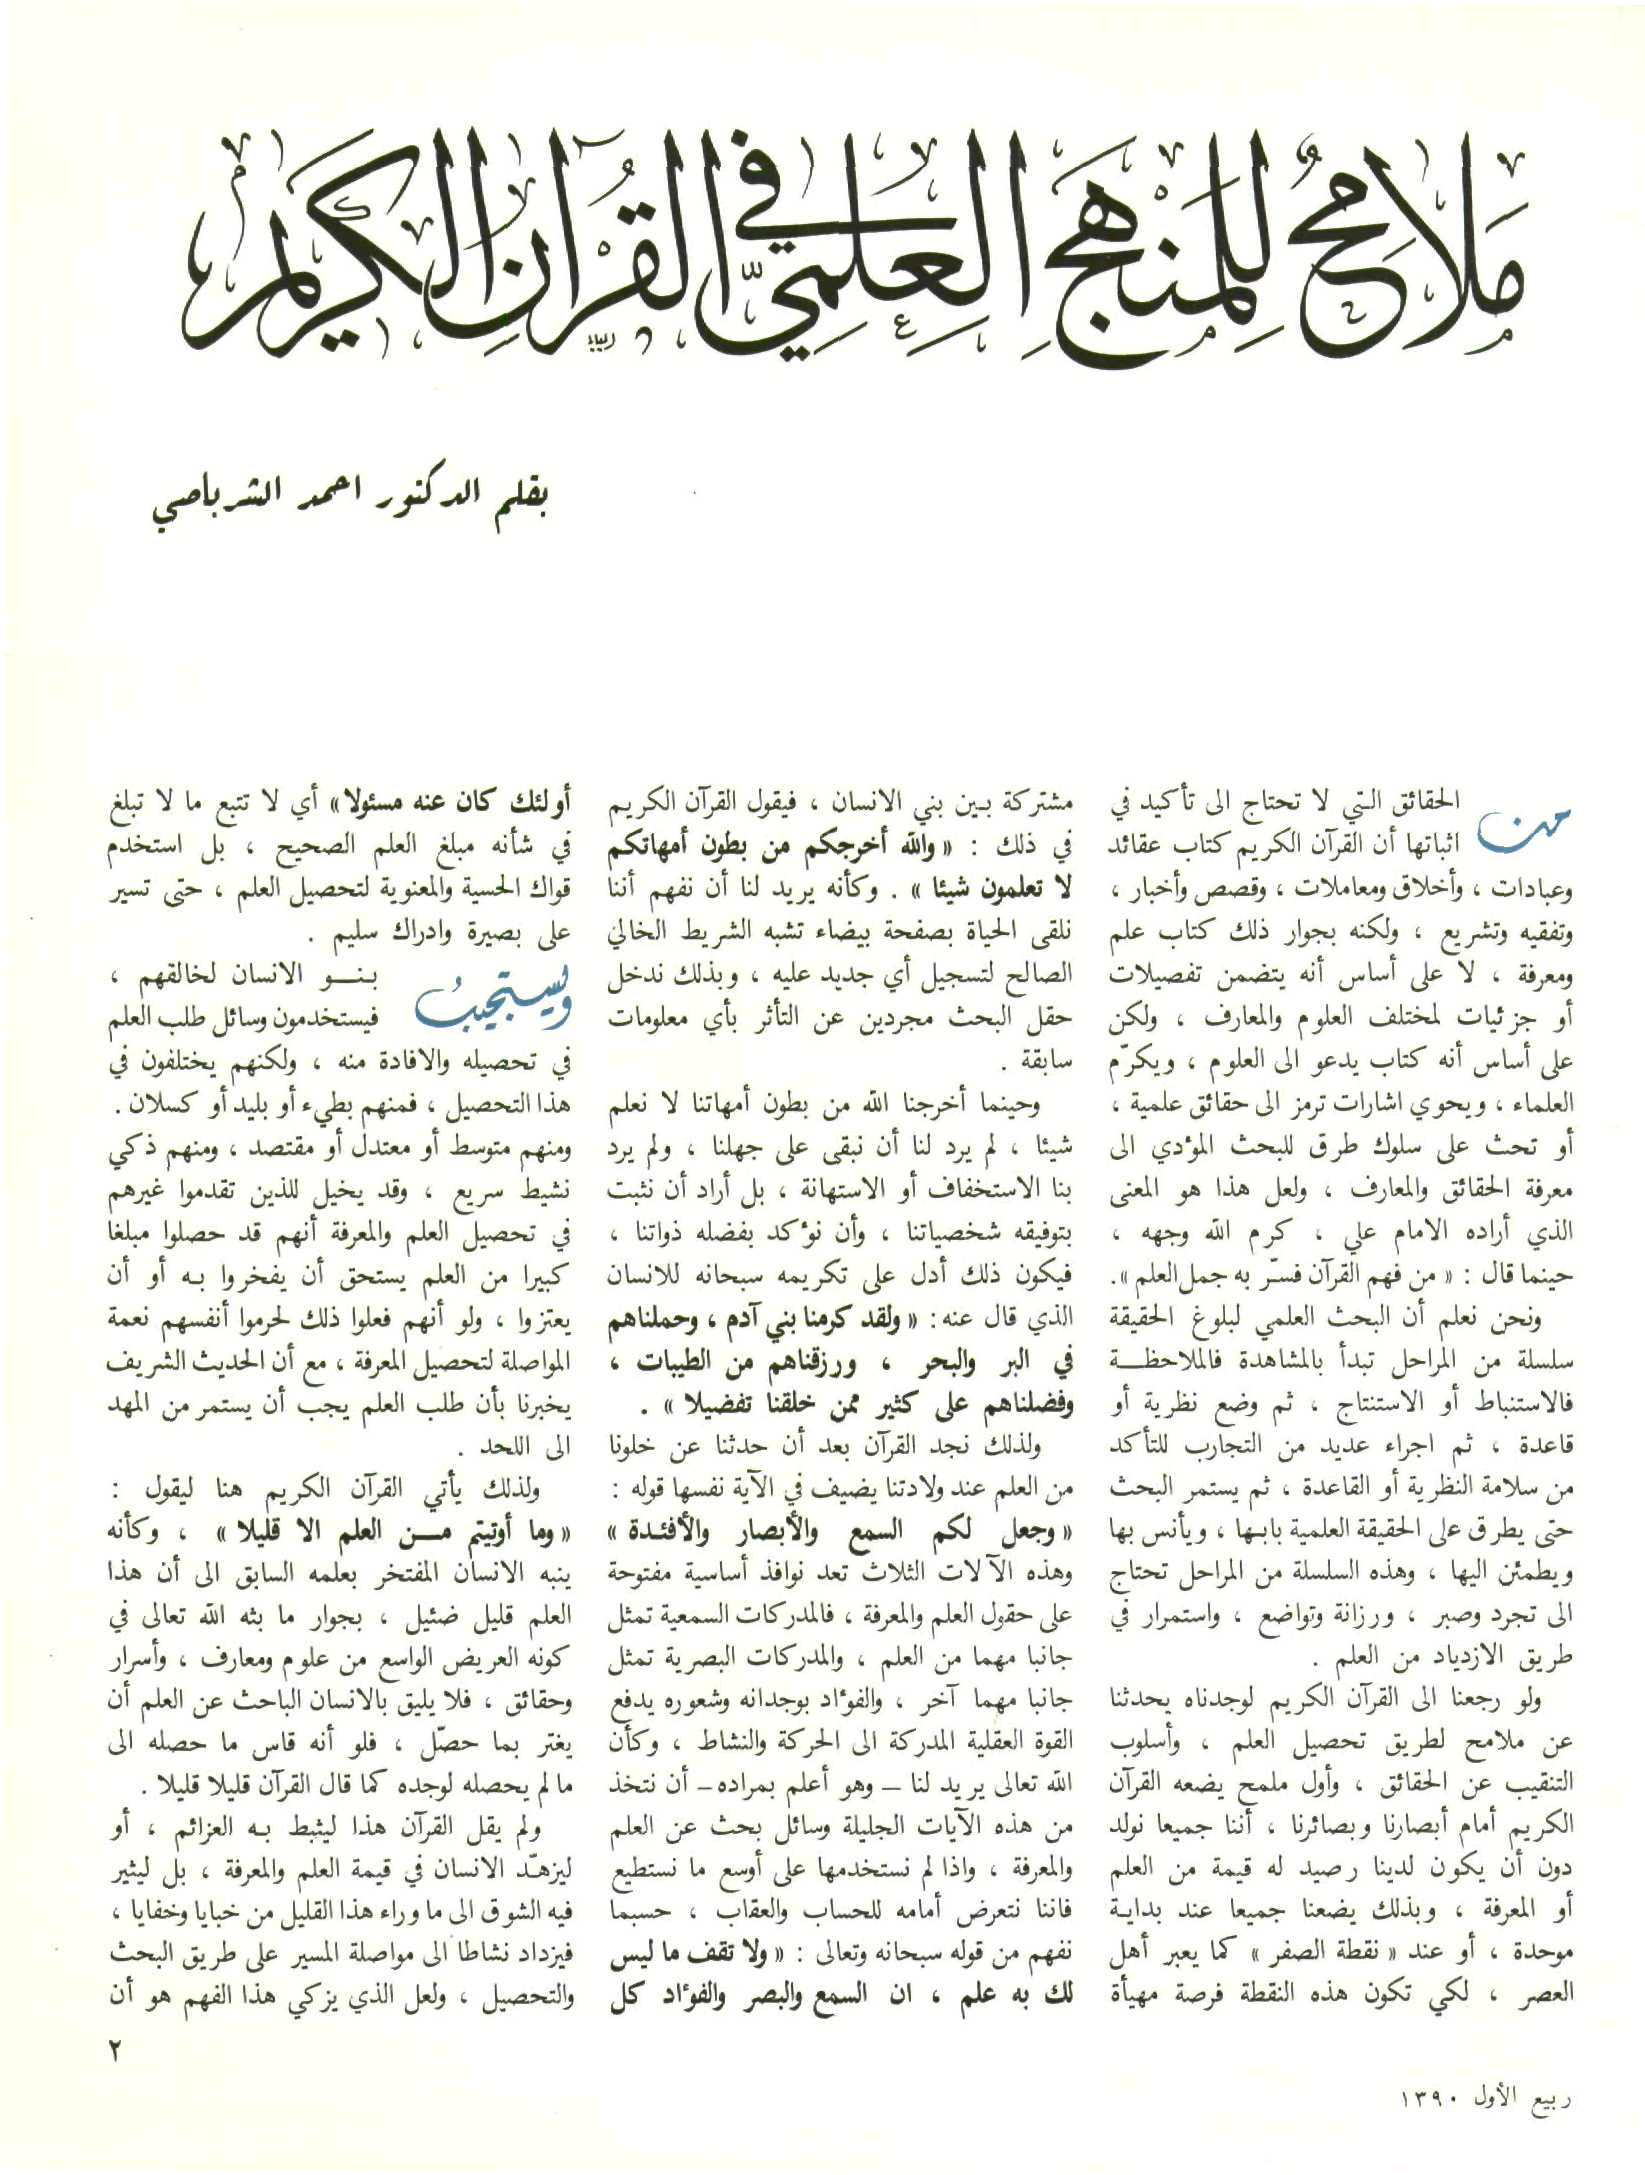 ملامح للمنهج العلمي في القرآن الكريم
بقلم الدكتور احمد الشرباصي
من الحقائق التي لا تحتاج الى تأكيد في
اثباتها أن القرآن الكريم كتاب عقائد
وعبادات ، وأخلاق ومعاملات ، وقصص وأخبار ،
وتفقيه وتشريع ، ولكنه بجوار ذلك كتاب علم
ومعرفة ، لا على أساس أنه يتضمن تفصيلات
أو جزئيات لمختلف العلوم والمعارف ، ولكن
على أساس أنه كتاب يدعو الى العلوم ، ويكرّم
العلماء ، ويحوي اشارات ترمز الى حقائق علمية ،
أو تحث على سلوك طرق للبحث المؤدي الى
معرفة الحقائق والمعارف ، ولعل هذا هو المعنى
الذي أراده الامام علي ، كرم الله وجهه ،
حينما قال : « من فهم القرآن فسّر به جمل العلم ».
ونحن نعلم أن البحث العلمي لبلوغ الحقيقة
سلسلة من المراحل تبدأ بالمشاهدة فالملاحظة
فالاستنباط أو الاستنتاج ، ثم وضع نظرية أو
قاعدة ، ثم اجراء عديد من التجارب للتأكد
من سلامة النظرية أو القاعدة ، ثم يستمر البحث
حتى يطرق على الحقيقة العلمية بابها ، ويأنس بها
ويطمئن اليها ، وهذه السلسلة من المراحل تحتاج
الى تجرد وصبر ، ورزانة وتواضع ، واستمرار في
طريق الازدياد من العلم .
ولو رجعنا الى القرآن الكريم لوجدناه يحدثنا
عن ملامح لطريق تحصيل العلم ، وأسلوب
التنقيب عن الحقائق ، وأول ملمح يضعه القرآن
الكريم أمام أبصارنا وبصائرنا ، أننا جميعا نولد
دون أن يكون لدينا رصيد له قيمة من العلم
أو المعرفة ، وبذلك يضعنا جميعا عند بداية
موحدة ، أو عند « نقطة الصفر » كما يعبر أهل
العصر ، لكي تكون هذه النقطة فرصة مهيأة
مشتركة بين بني الانسان ، فيقول القرآن الكريم
في ذلك : « والله أخرجكم من بطون أمهاتكم
لا تعلمون شيئا » . وكأنه يريد لنا أن نفهم أننا
نلقى الحياة بصفحة بيضاء تشبه الشريط الخالي
الصالح لتسجيل أي جديد عليه ، وبذلك ندخل
حقل البحث مجردين عن التأثر بأي معلومات
سابقة .
وحينما أخرجنا الله من بطون أمهاتنا لا نعلم
شيئا ، لم يرد لنا أن نبقى على جهلنا ، ولم يرد
بنا الاستخفاف أو الاستهانة ، بل أراد أن نثبت
بتوفيقه شخصياتنا ، وأن نؤكد بفضله ذواتنا ،
فيكون ذلك أدل على تكريمه سبحانه للانسان
الذي قال عنه : « ولقد كرمنا بني آدم ، وحملناهم
في البر والبحر ، ورزقناهم من الطيبات ،
وفضلناهم على كثير ممن خلقنا تفضيلا » .
ولذلك نجد القرآن بعد أن حدثنا عن خلونا
من العلم عند ولادتنا يضيف في الآية نفسها قوله :
« وجعل لكم السمع والأبصار والأفئدة »
وهذه الآلات الثلاث تعد نوافذ أساسية مفتوحة
على حقول العلم والمعرفة ، فالمدركات السمعية تمثل
جانبا مهما من العلم ، والمدركات البصرية تمثل
جانبا مهما آخر ، والفؤاد بوجدانه وشعوره يدفع
القوة العقلية المدركة الى الحركة والنشاط ، وكأن
الله تعالى يريد لنا – وهو أعلم بمراده – أن نتخذ
من هذه الآيات الجليلة وسائل بحث عن العلم
والمعرفة ، واذا لم نستخدمها على أوسع ما نستطيع
فاننا نتعرض أمامه للحساب والعقاب ، حسبما
نفهم من قوله سبحانه وتعالى : « ولا تقف ما ليس
لك به علم ، ان السمع والبصر والفؤاد كل
أولئك كان عنه مسئولا » أي لا تتبع ما لا تبلغ
في شأنه مبلغ العلم الصحيح ، بل استخدم
قواك الحسية والمعنوية لتحصيل العلم ، حتى تسير
على بصيرة وادراك سليم .
ويستجيب بنو الانسان لخالقهم ،
فيستخدمون وسائل طلب العلم
في تحصيله والافادة منه ، ولكنهم يختلفون في
هذا التحصيل ، فمنهم بطيء أو بليد أو كسلان .
ومنهم متوسط أو معتدل أو مقتصد ، ومنهم ذكي
نشيط سريع ، وقد يخيل للذين تقدموا غيرهم
في تحصيل العلم والمعرفة أنهم قد حصلوا مبلغا
كبيرا من العلم يستحق أن يفخروا به أو أن
يعتزوا ، ولو أنهم فعلوا ذلك لحرموا أنفسهم نعمة
المواصلة لتحصيل المعرفة ، مع أن الحديث الشريف
يخبرنا بأن طلب العلم يجب أن يستمر من المهد
الى اللحد .
ولذلك يأتي القرآن الكريم هنا ليقول :
« وما أوتيتم من العلم الا قليلا » ، وكأنه
ينبه الانسان المفتخر بعلمه السابق الى أن هذا
العلم قليل ضئيل ، بجوار ما بثه الله تعالى في
كونه العريض الواسع من علوم ومعارف ، وأسرار
وحقائق ، فلا يليق بالانسان الباحث عن العلم أن
يغتر بما حصّل ، فلو أنه قاس ما حصله الى
ما لم يحصله لوجده كما قال القرآن قليلا قليلا .
ولم يقل القرآن هذا ليثبط به العزائم ، أو
ليزهّد الانسان في قيمة العلم والمعرفة ، بل ليثير
فيه الشوق الى ما وراء هذا القليل من خبايا وخفايا ،
فيزداد نشاطا الى مواصلة المسير على طريق البحث
والتحصيل ، ولعل الذي يزكي هذا الفهم هو أن
٢
ربيع الأول ١٣٩٠